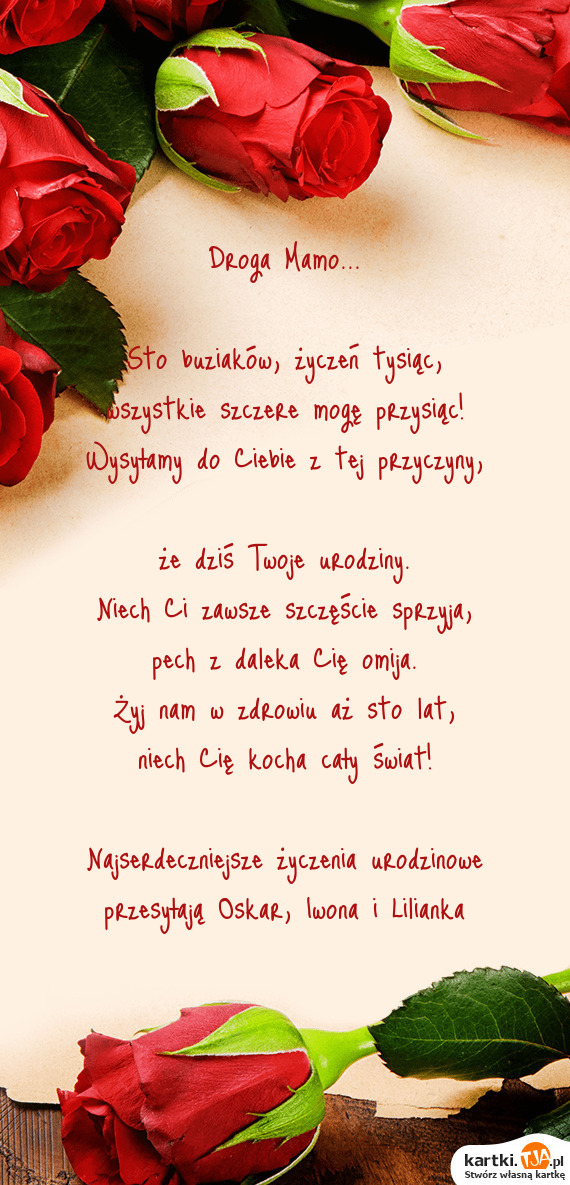 Droga Mamo...
Sto buziaków, życzeń tysiąc,
wszystkie szczere mogę przysiąc!
Wysyłamy do Ciebie z tej przyczyny,
że dziś Twoje urodziny.
Niech Ci zawsze szczęście sprzyja,
pech z daleka Cię omija.
Żyj nam w zdrowiu aż sto lat,
niech Cię kocha cały świat!
Najserdeczniejsze życzenia urodzinowe
przesyłają Oskar, Iwona i Lilianka
kartki.TJA.pl
Stwórz własną kartkę